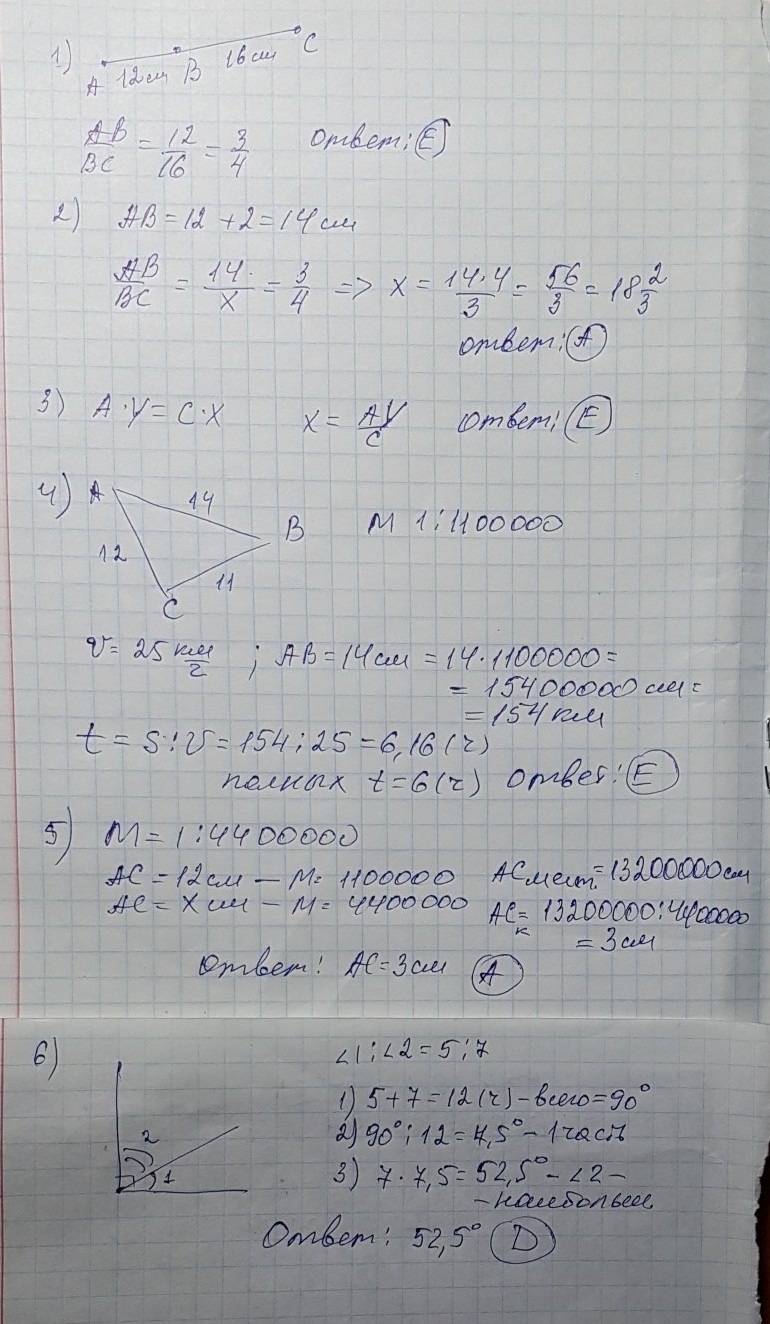 1) A 12см B 16см C
AB/BC = 12/16 = 3/4 ответ: E
2) AB = 12 + 2 = 14 см
AB/BC = 14/x = 3/4 => x = 14·4/3 = 56/3 = 18 2/3
ответ: A
3) A·y = C·x x = Ay/C ответ: E
4) A 14 B M 1:1100000
12 11
C
v = 25 км/г ; AB = 14 см = 14·1100000 =
= 15400000 см =
= 154 км
t = s:v = 154:25 = 6,16 (г)
полных t = 6 (г) ответ: E
5) M = 1:4400000
AC = 12 см — M = 1100000 AC мест. = 13200000 см
AC = x см — M = 4400000 AC к = 13200000:4400000
= 3 см
Ответ: AC = 3 см A
6) ∠1:∠2 = 5:7
1) 5 + 7 = 12 (ч) – всего = 90°
2 2) 90°:12 = 7,5° – 1 часть
1 3) 7·7,5 = 52,5° – ∠2 –
– наибольш.
Ответ: 52,5° D